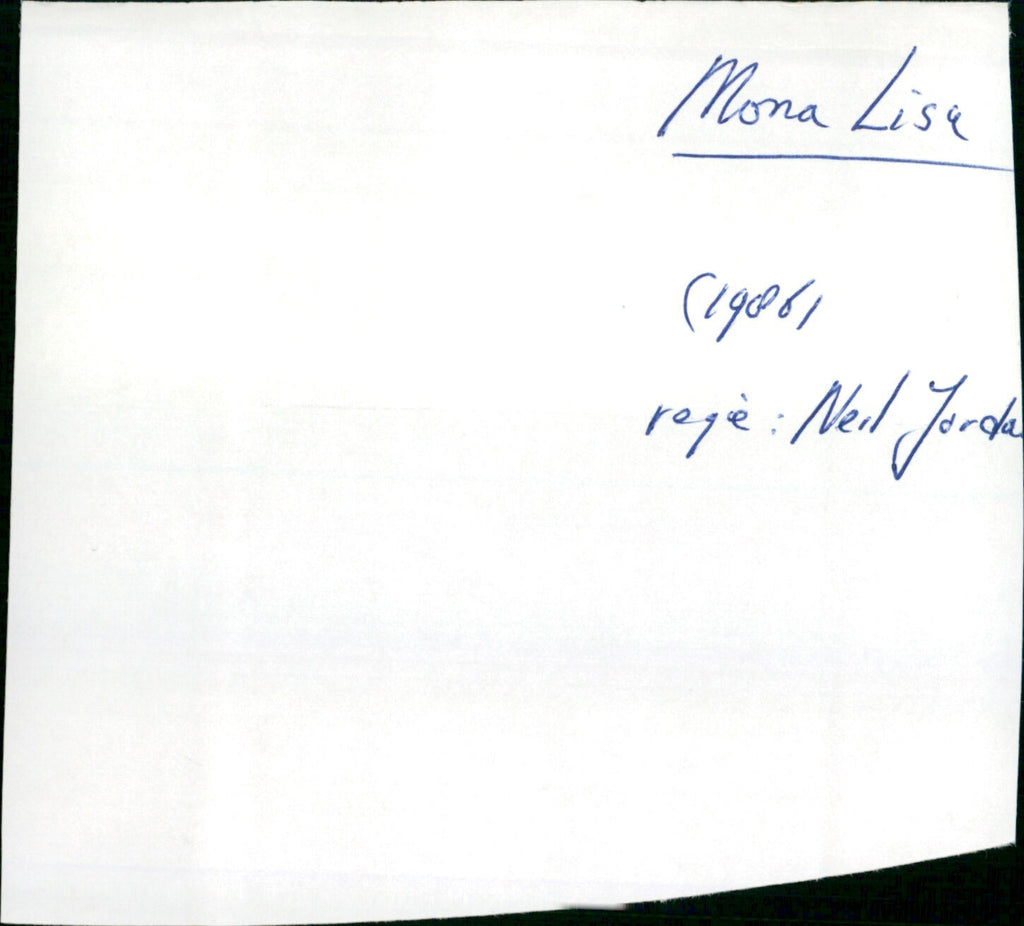 Mona Lisa
(1986)
regie: Neil Jorda